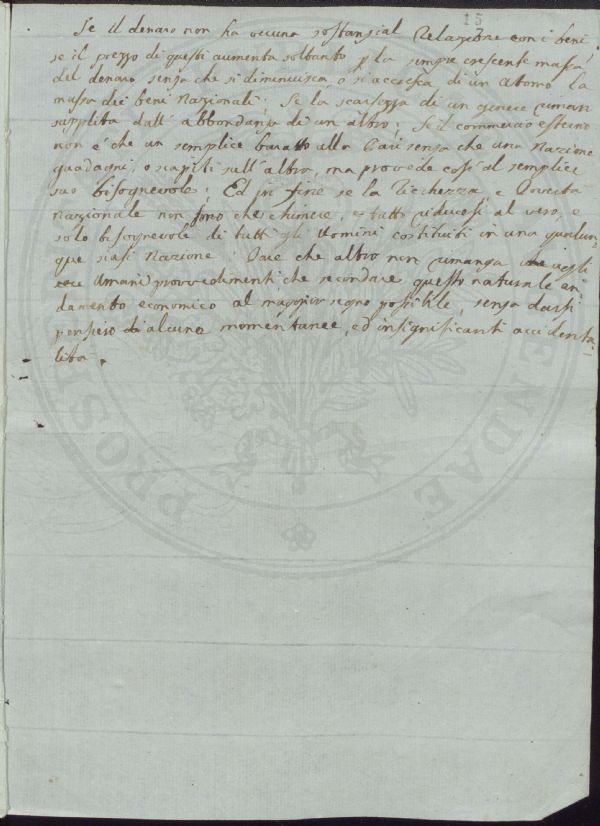 15
Se il denaro non ha veruna sostanzial Relazione con i beni
se il prezzo di questi aumenta soltanto p la sempre crescente massa
del denaro senza che si diminuisca, o s'accresca di un atomo la
massa dei beni Nazionali; Se la scarsezza di un genere viman
supplita dall'abbondanza di un altro; Se il commercio esterno
non è che un semplice baratto alla Pari senza che una Nazione
guadagni, o scapiti sull'altra, ma provvede così al semplice
suo bisognevole; Ed in fine se la Ricchezza, e Povertà
Nazionale non sono che chimere, e tutto riducesi al vero, e
solo bisognevole di tutti gli Uomini costituiti in una qualun-
que siasi Nazione; Pare che altro non rimanga negli
Umani provvedimenti che secondare questo naturale an-
damento economico al maggior segno possibile, senza darsi
pensiero di alcune momentanee, ed insignificanti accidenta-
lità.
PROSP ENDAE